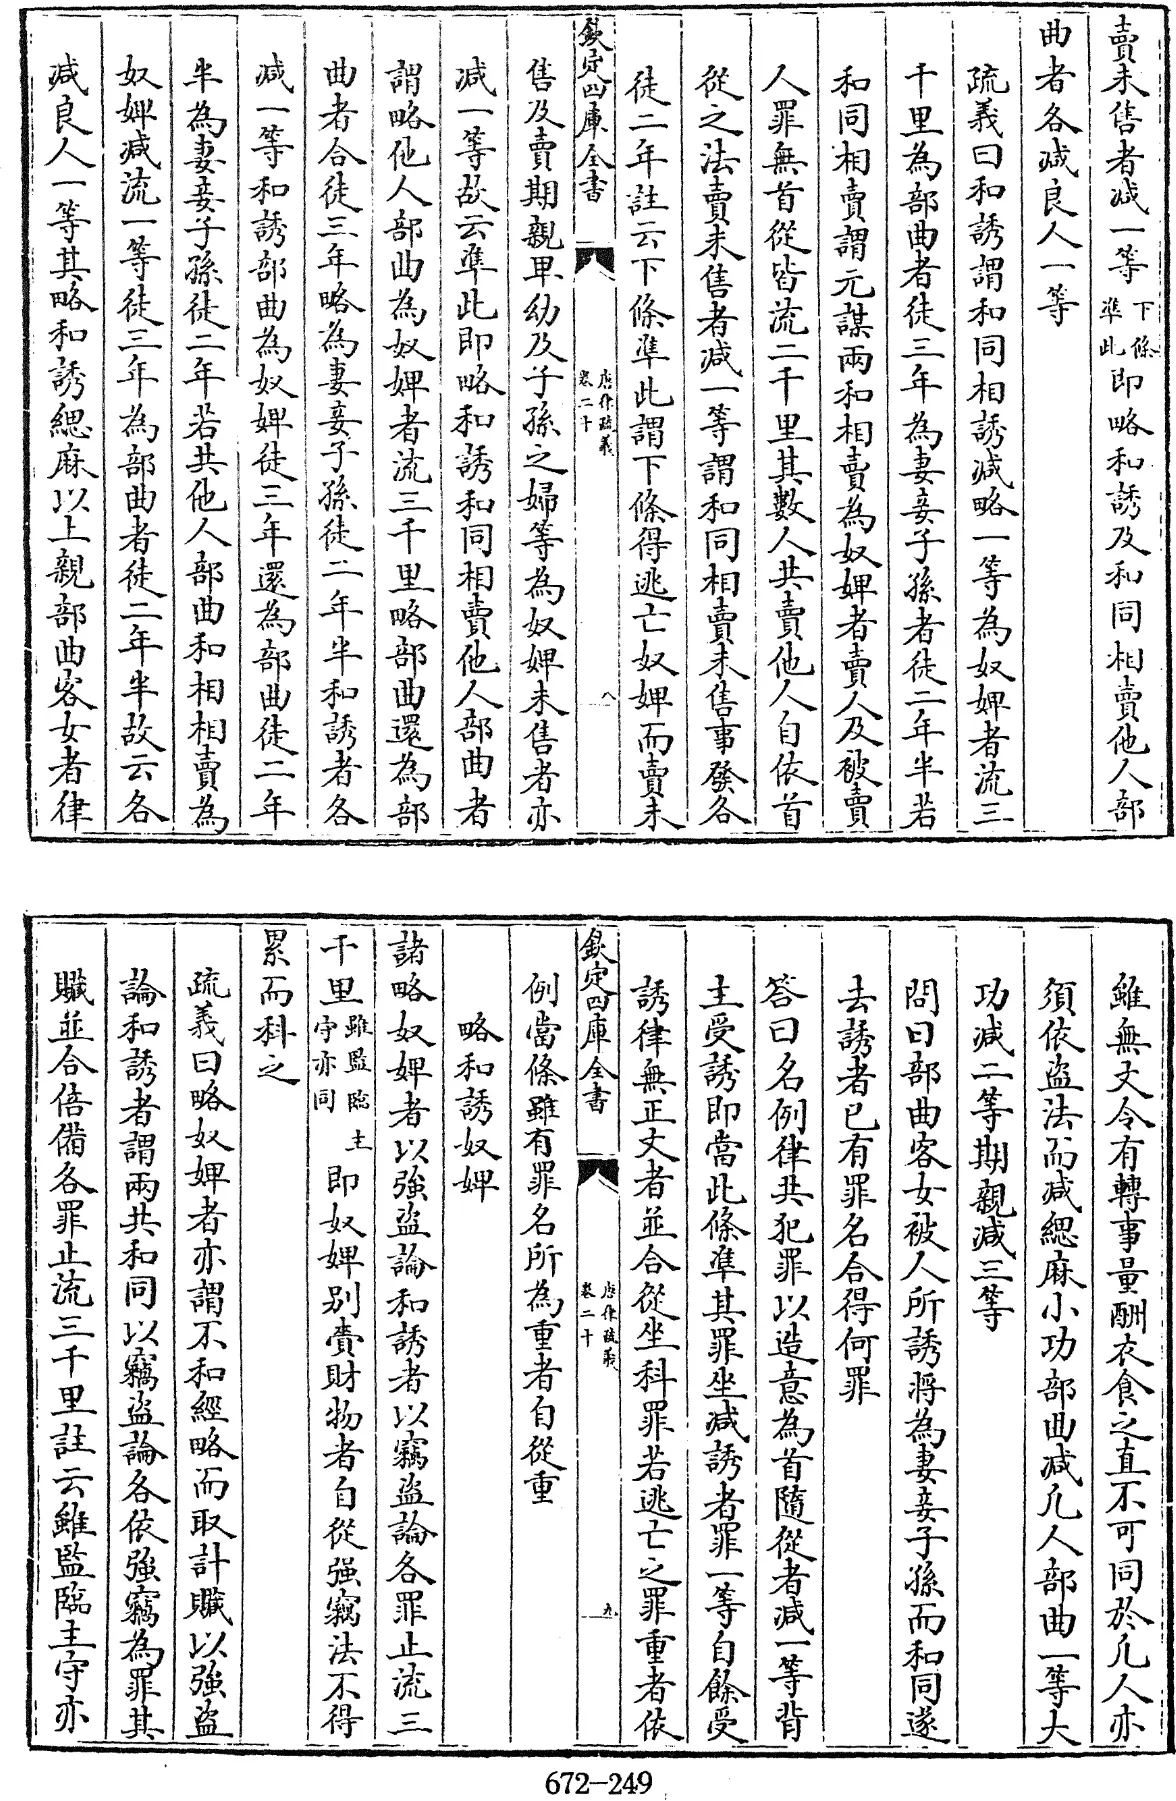 賣未售者減一等下條準此即略和誘及和同相賣他人部
曲者各減良人一等
疏義曰和誘謂和同相誘減略一等為奴婢者流三
千里為部曲者徒三年為妻妾子孫者徒二年半若
和同相賣謂元謀兩和相賣為奴婢者賣人及被賣
人罪無首從皆流二千里其數人共賣他人自依首
從之法賣未售者減一等謂和同相賣未售事發各
徒二年註云下條準此謂下條得逃亡奴婢而賣未
欽定四庫全書
唐律疏義
卷二十
八
售及賣期親卑幼及子孫之婦等為奴婢未售者亦
減一等故云準此即略和誘和同相賣他人部曲者
謂略他人部曲為奴婢者流三千里略部曲還為部
曲者合徒三年略為妻妾子孫徒二年半和誘者各
減一等和誘部曲為奴婢徒三年還為部曲徒二年
半為妻妾子孫徒二年若共他人部曲和相相賣為
奴婢減流一等徒三年為部曲者徒二年半故云各
減良人一等其略和誘緦麻以上親部曲客女者律
雖無文令有轉事量酬衣食之直不可同於凡人亦
須依盜法而減緦麻小功部曲減凡人部曲一等大
功減二等期親減三等
問曰部曲客女被人所誘將為妻妾子孫而和同遂
去誘者已有罪名合得何罪
答曰名例律共犯罪以造意為首隨從者減一等背
主受誘即當此條準其罪坐減誘者罪一等自餘受
誘律無正文者並合從坐科罪若逃亡之罪重者依
欽定四庫全書
唐律疏義
卷二十
九
例當條雖有罪名所為重者自從重
略和誘奴婢
諸略奴婢者以強盜論和誘者以竊盜論各罪止流三
千里雖監臨主守亦同即奴婢別賷財物者自從強竊法不得
累而科之
疏義曰略奴婢者亦謂不和經略而取計贓以強盜
論和誘者謂兩共和同以竊盜論各依強竊為罪其
贓並合倍備各罪止流三千里註云雖監臨主守亦
672-249